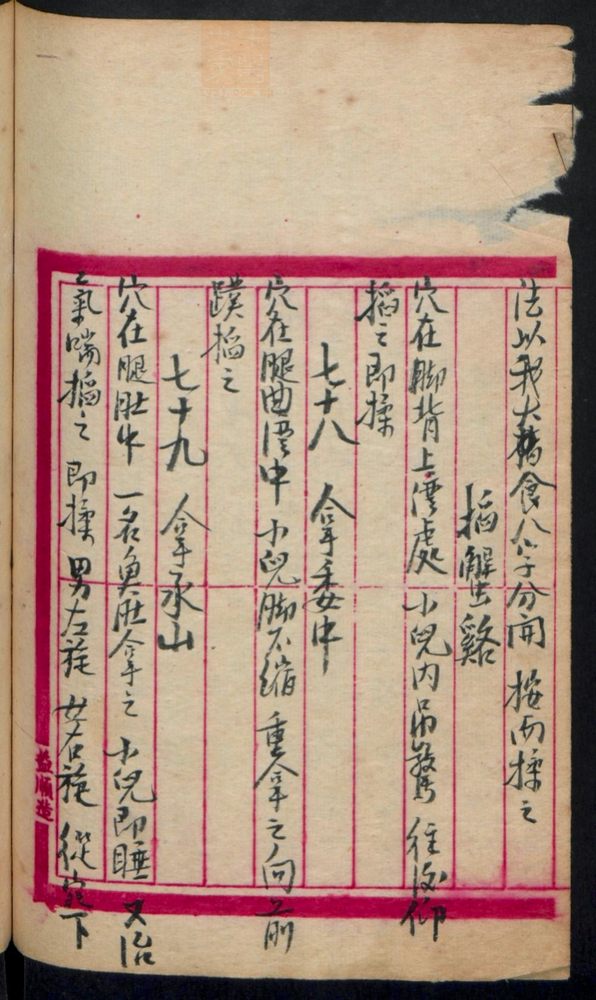 法以我大指食八字分開 按而揉之
掐解蟹谿
穴在脚背上灣處 小兒內吊驚 往後仰
掐之即揉
七十八 拿委中
穴在腿曲灣中 小兒脚不縮 重拿之向前
蹼掐之
七十九 拿承山
穴在腿肚中 一名魚肚拿之 小兒即睡 又治
氣喘掐之 即揉 男左旋 女右旋 從下
益順造